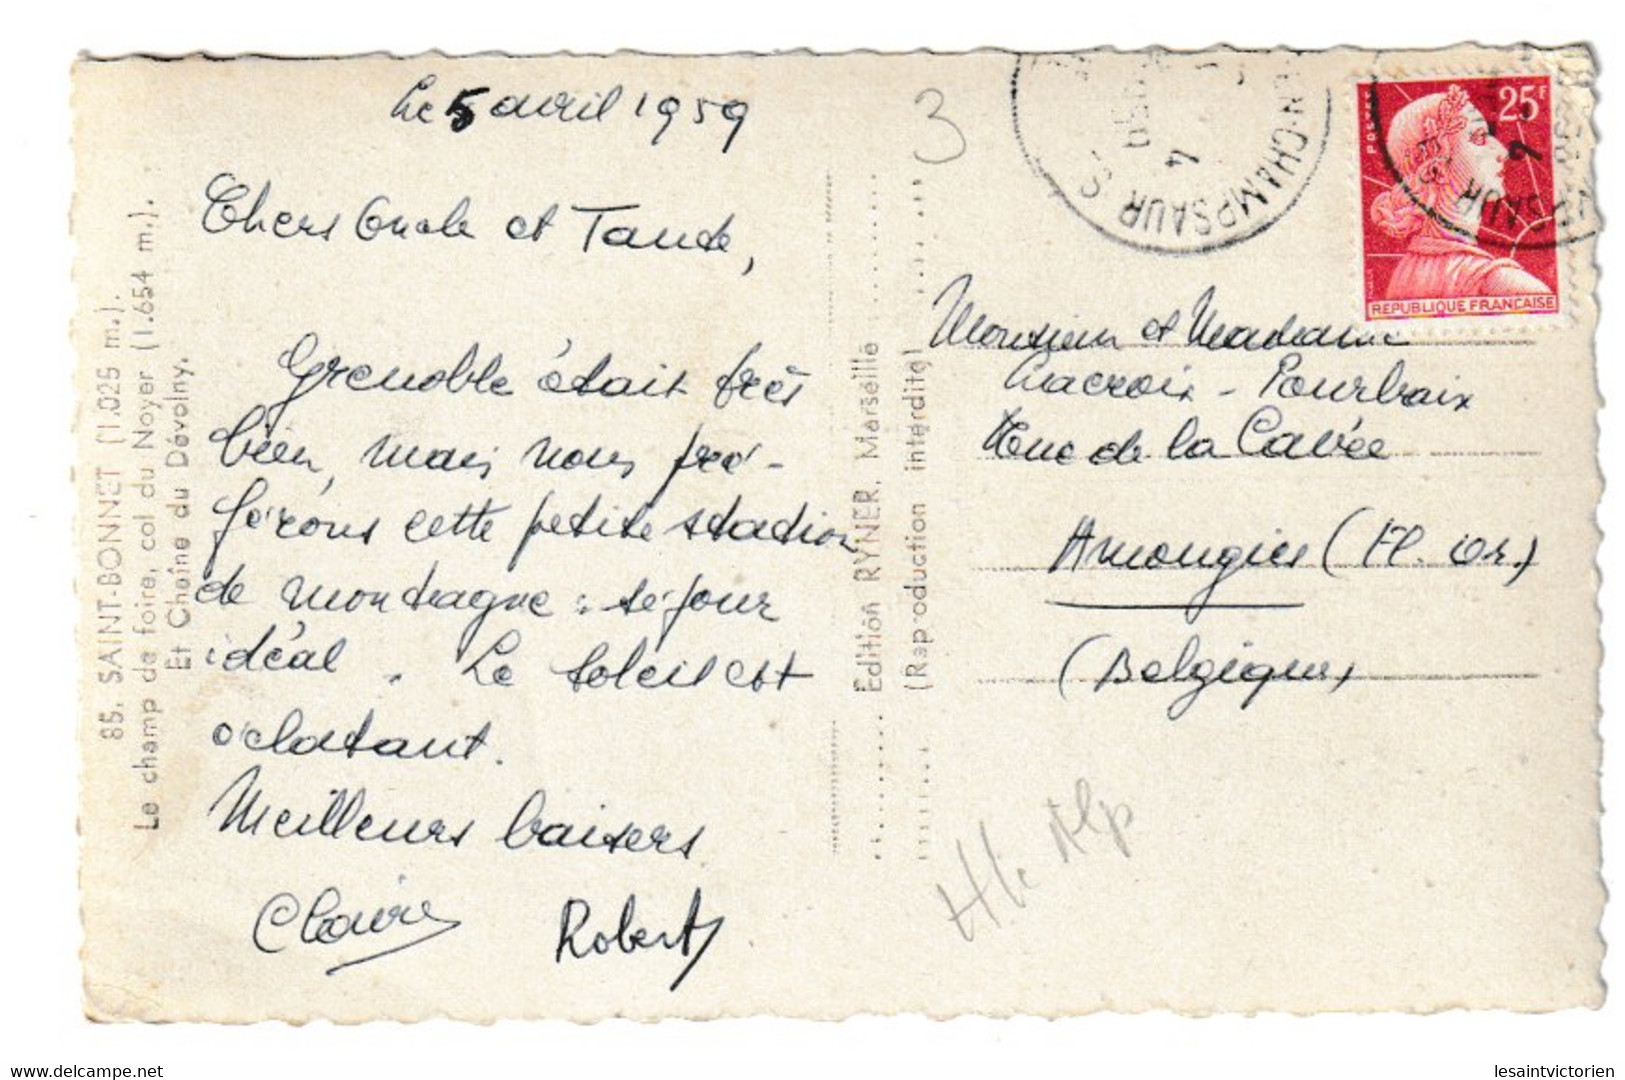 Le 5 avril 1959
Chers Oncle et Tante,
Grenoble était très
bien, mais nous pré-
férons cette petite station
de montagne : séjour
idéal. Le soleil est
éclatant.
Meilleurs baisers
Claire Robert
85. SAINT-BONNET (1.025 m.).
Le champ de foire, col du Noyer (1.654 m.).
Et Chaîne du Dévoluy.
Edition RYNER, Marseille
(Reproduction interdite)
3
CHAMPSAUR
POSTES
25F
REPUBLIQUE FRANÇAISE
Monsieur et Madame
Lacroix - Pourbaix
Rue de la Cavée
Amougies (Fl. Or.)
(Belgique)
Hte Alp
delcampe.net
lesaintvictorien